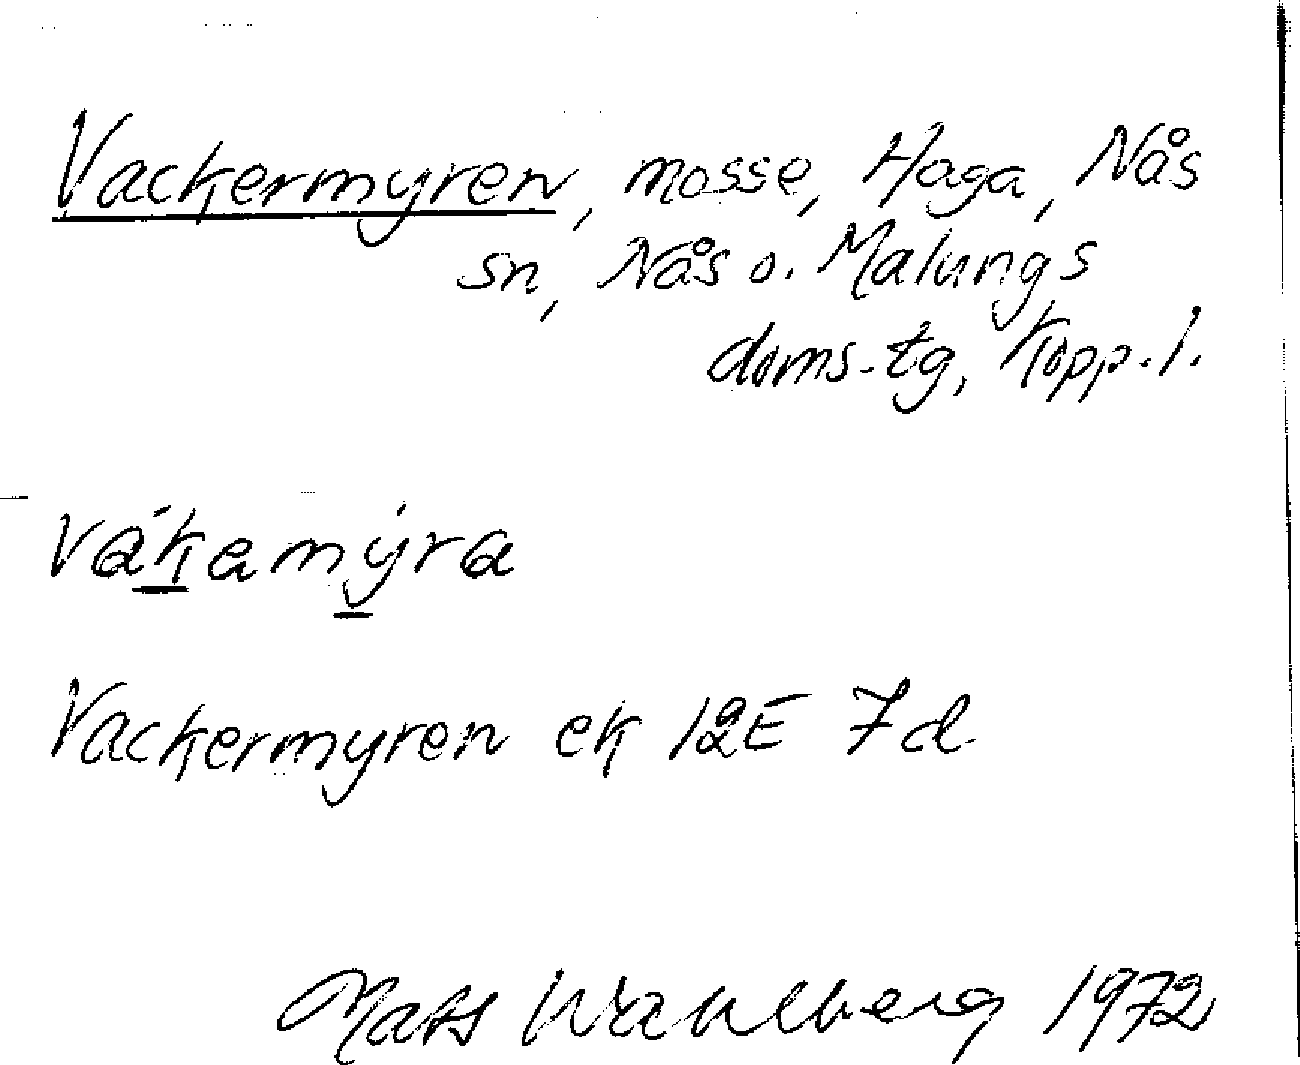 Vackermyren, mosse, Haga, Nås
sn, Nås o. Malungs
doms.tg, Kopp.l.
vákamýra
Vackermyren ek 12E 7d
Mats Wahlberg 1972